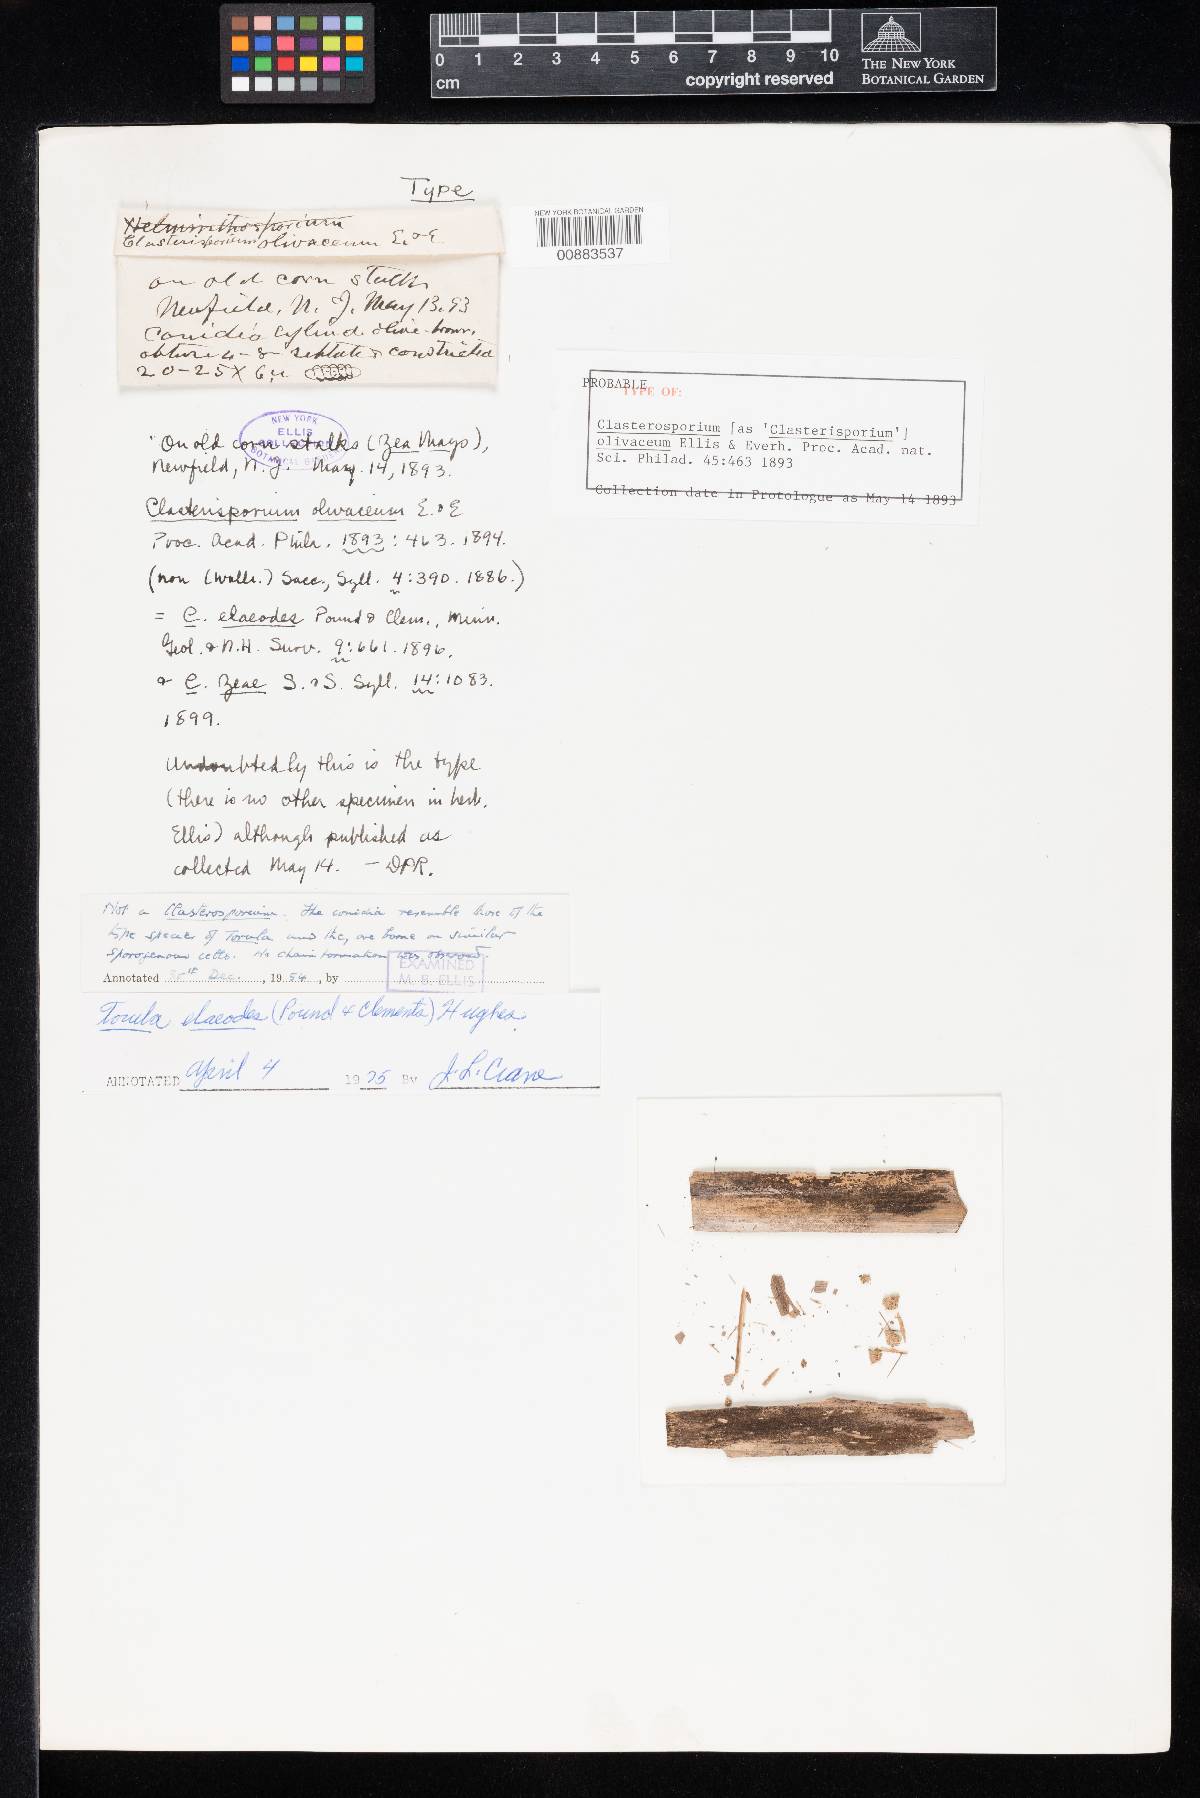 0 1 2 3 4 5 6 7 8 9 10
cm
copyright reserved
THE NEW YORK
BOTANICAL GARDEN
Type
Helminthosporium
Clasterisporium olivaceum E. & E
on old corn stalks
Newfield, N. J. May 13. 93
Conidia cylind. olive-brown,
obtuse 4-8 septate & constricted
20-25 X 6 µ
NEW YORK BOTANICAL GARDEN
00883537
PROBABLE
TYPE OF:
Clasterosporium [as 'Clasterisporium']
olivaceum Ellis & Everh. Proc. Acad. nat.
Sci. Philad. 45:463 1893
Collection date in Protologue as May 14 1893
NEW YORK
ELLIS
COLLECTION
BOTANICAL GARDEN
"On old corn stalks (Zea Mays),
Newfield, N. J. May. 14, 1893.
Clasterisporium olivaceum E. & E
Proc. Acad. Phila. 1893: 463. 1894.
(non (Wallr.) Sacc., Syll. 4:390. 1886.)
= C. elaeodes Pound & Clem., Minn.
Geol. & N.H. Surv. 9:661. 1896.
& C. Zeae S. & S. Syll. 14:1083.
1899.
Undoubtedly this is the type
(there is no other specimen in herb.
Ellis) although published as
collected May 14. — DPR.
Not a Clasterosporium. The conidia resemble those of the
type species of Torula and they are borne on similar
sporogenous cells. No chain formation was observed.
Annotated 30th Dec., 1954, by
EXAMINED
M. B. ELLIS
Torula elaeodes (Pound & Clements) Hughes.
ANNOTATED April 4 1975 By J. L. Crane